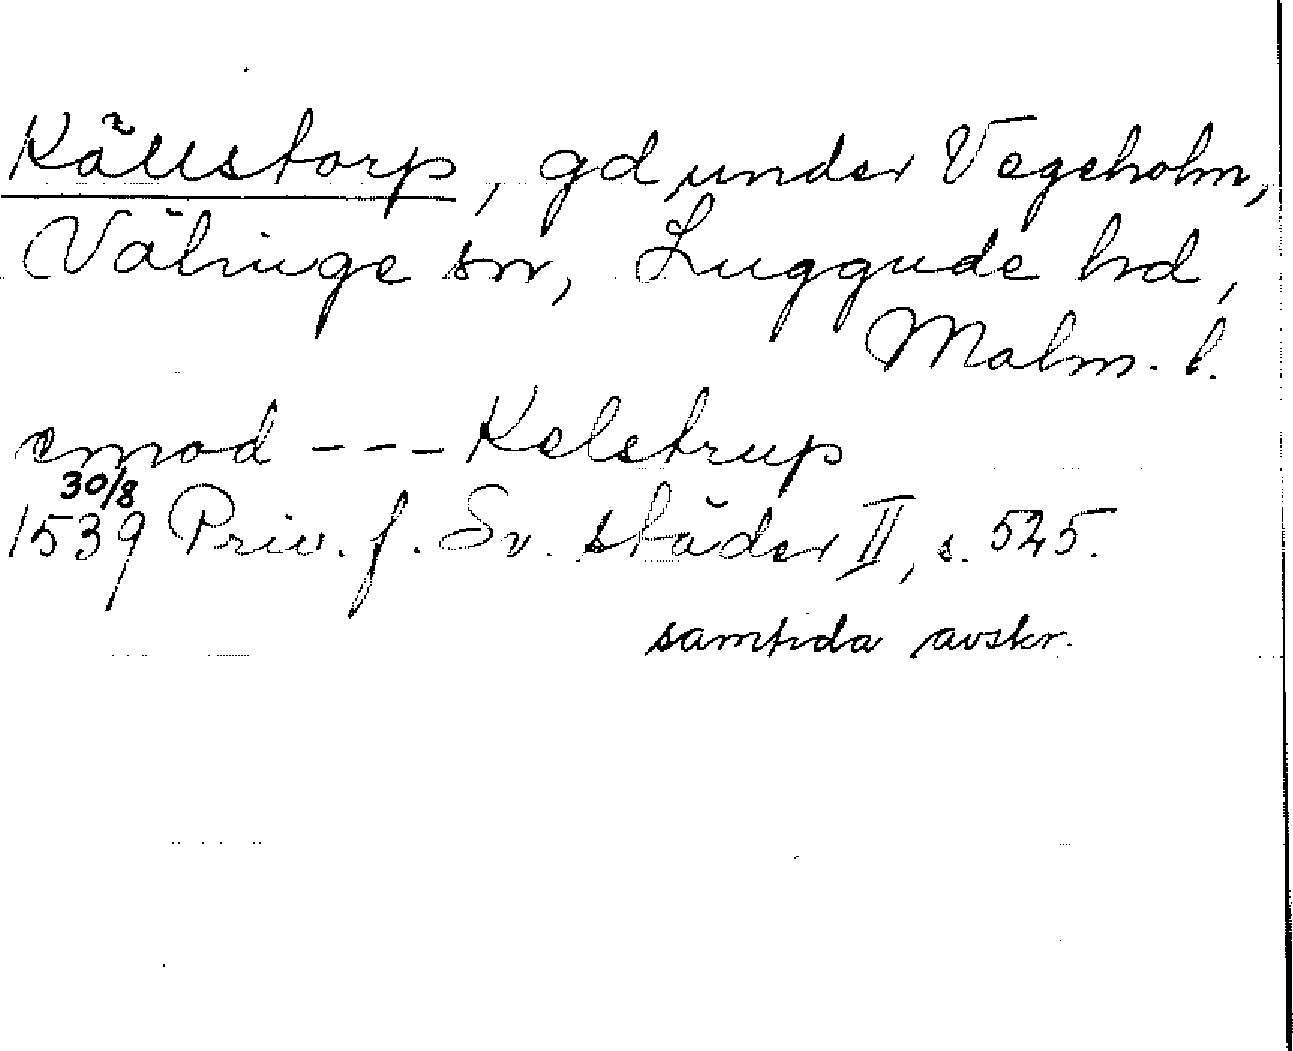 Källstorp, gd under Vegeholm,
Välinge sn, Luggude hd,
Malm. l.
emod --- Kelstrup
30/8
1539 Priv. f. Sv. städer II, s. 525.
samtida avskr.